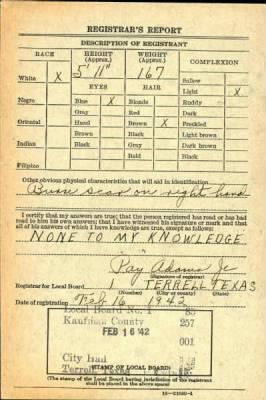 REGISTRAR'S REPORT
DESCRIPTION OF REGISTRANT
RACE HEIGHT (Approx.) WEIGHT (Approx.) COMPLEXION
5' 11" 167
White X Sallow
EYES HAIR Light X
Negro Blue X Blonde Ruddy
Gray Red Dark
Oriental Hazel Brown X Freckled
Brown Black Light brown
Indian Black Gray Dark brown
Bald Black
Filipino
Other obvious physical characteristics that will aid in identification
Burn scar on right hand
I certify that my answers are true; that the person registered has read or has had
read to him his own answers; that I have witnessed his signature or mark and that
all of his answers of which I have knowledge are true, except as follows:
NONE TO MY KNOWLEDGE
Ray Adams Jr
(Signature of registrar)
Registrar for Local Board 1 TERRELL TEXAS
(Number) (City or county) (State)
Date of registration Feb 16 1942
Local Board No. 1 85
Kaufman County 257
FEB 16 '42
001
City Hall
Terrell, Texas
STAMP OF LOCAL BOARD
(The stamp of the Local Board having jurisdiction of the registrant
shall be placed in the above space)